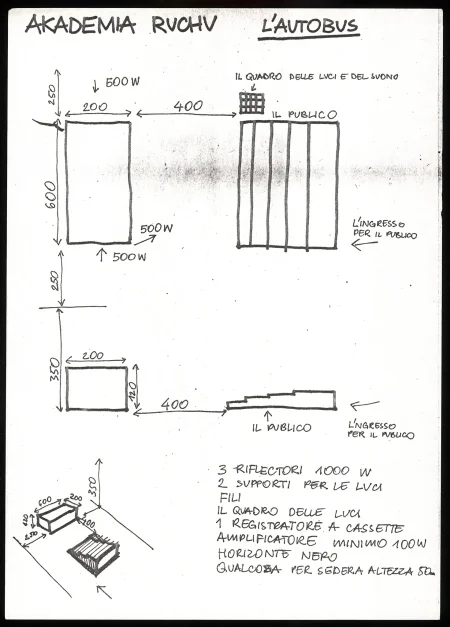 AKADEMIA RUCHU L'AUTOBUS
IL QUADRO DELLE LUCI E DEL SUONO
500 W
250
200
400
IL PUBLICO
600
L'INGRESSO
PER IL PUBLICO
500 W
500 W
250
350
200
120
400
IL PUBLICO
L'INGRESSO
PER IL PUBLICO
350
600
200
3 RIFLECTORI 1000 W
2 SUPPORTI PER LE LUCI
FILI
IL QUADRO DELLE LUCI
1 REGISTRATORE A CASSETTE
AMPLIFICATORE MINIMO 100W
HORIZONTE NERO
QUALCOSA PER SEDERA ALTEZZA